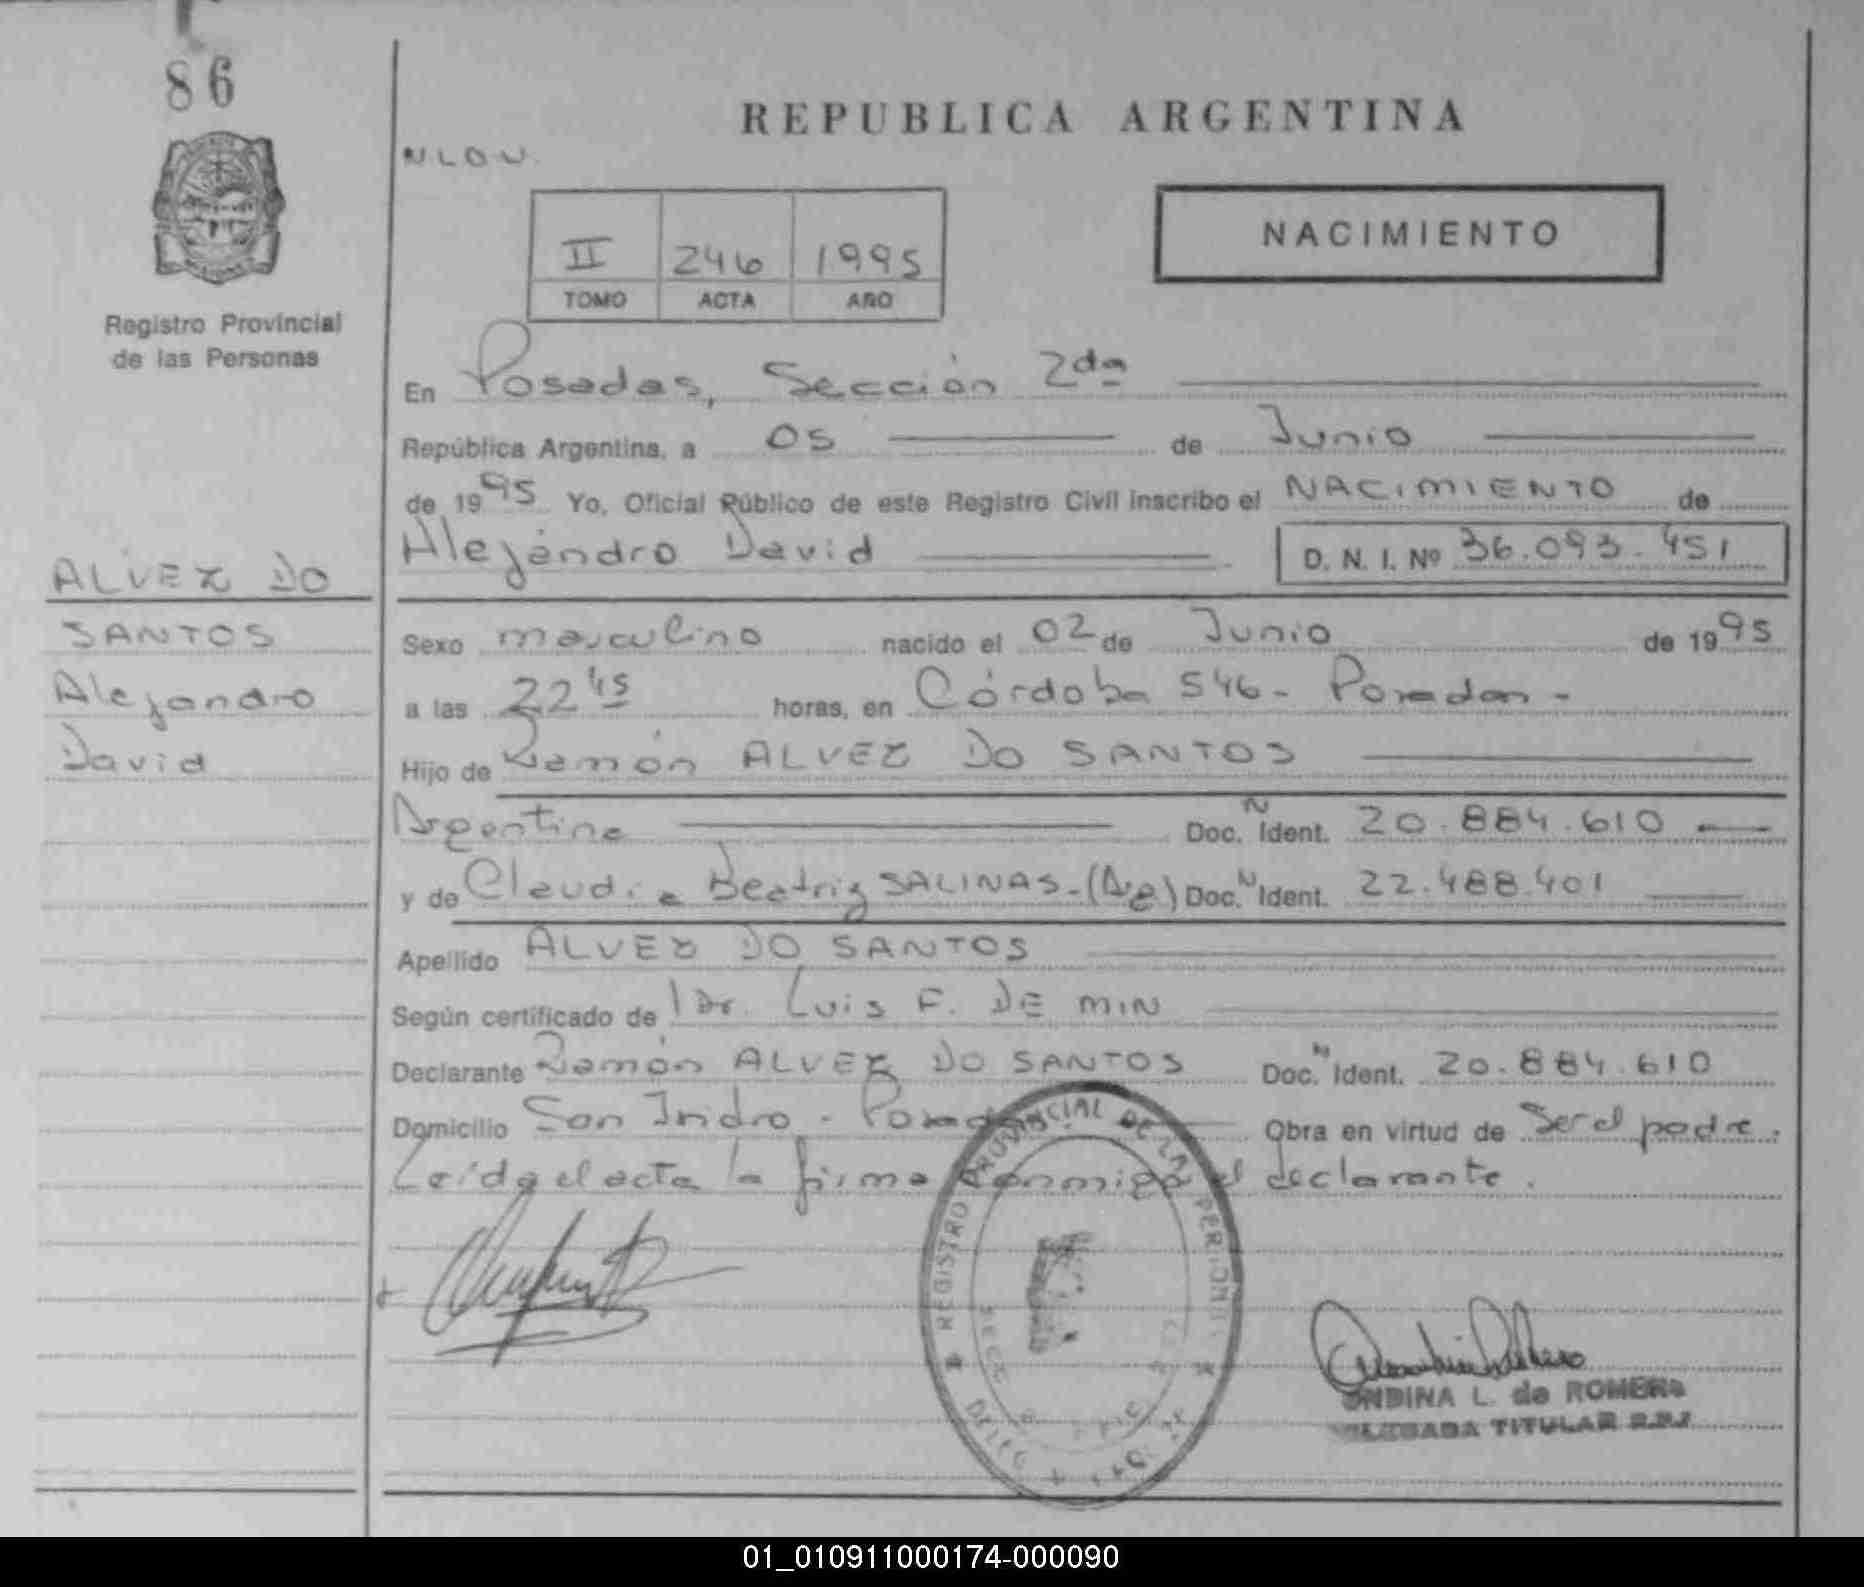 86
REPUBLICA ARGENTINA
NACIMIENTO
II 246 1995
TOMO ACTA AÑO
Registro Provincial
de las Personas
En Posadas, Sección 2da
República Argentina, a 05 de Junio
de 1995 Yo, Oficial Público de este Registro Civil inscribo el NACIMIENTO de
Alejandro David D. N. I. Nº 36.093.451
ALVEZ DO
SANTOS
Alejandro
David
Sexo masculino nacido el 02 de Junio de 1995
a las 22 45 horas, en Córdoba 546 - Posadas -
Hijo de Ramón ALVEZ DO SANTOS
Argentina Doc. N Ident. 20.884.610
y de Claudia Beatriz SALINAS - (Arg) Doc. N Ident. 22.488.401
Apellido ALVEZ DO SANTOS
Según certificado de Dr. Luis F. DE MIN
Declarante Ramón ALVEZ DO SANTOS Doc. N Ident. 20.884.610
Domicilio San Isidro - Posadas Obra en virtud de Ser el padre.
Leída el acta la firma conmigo el declarante.
REGISTRO PROVINCIAL DE LAS PERSONAS
ONDINA L. de ROMERO
TITULAR R.P.
01_010911000174-000090